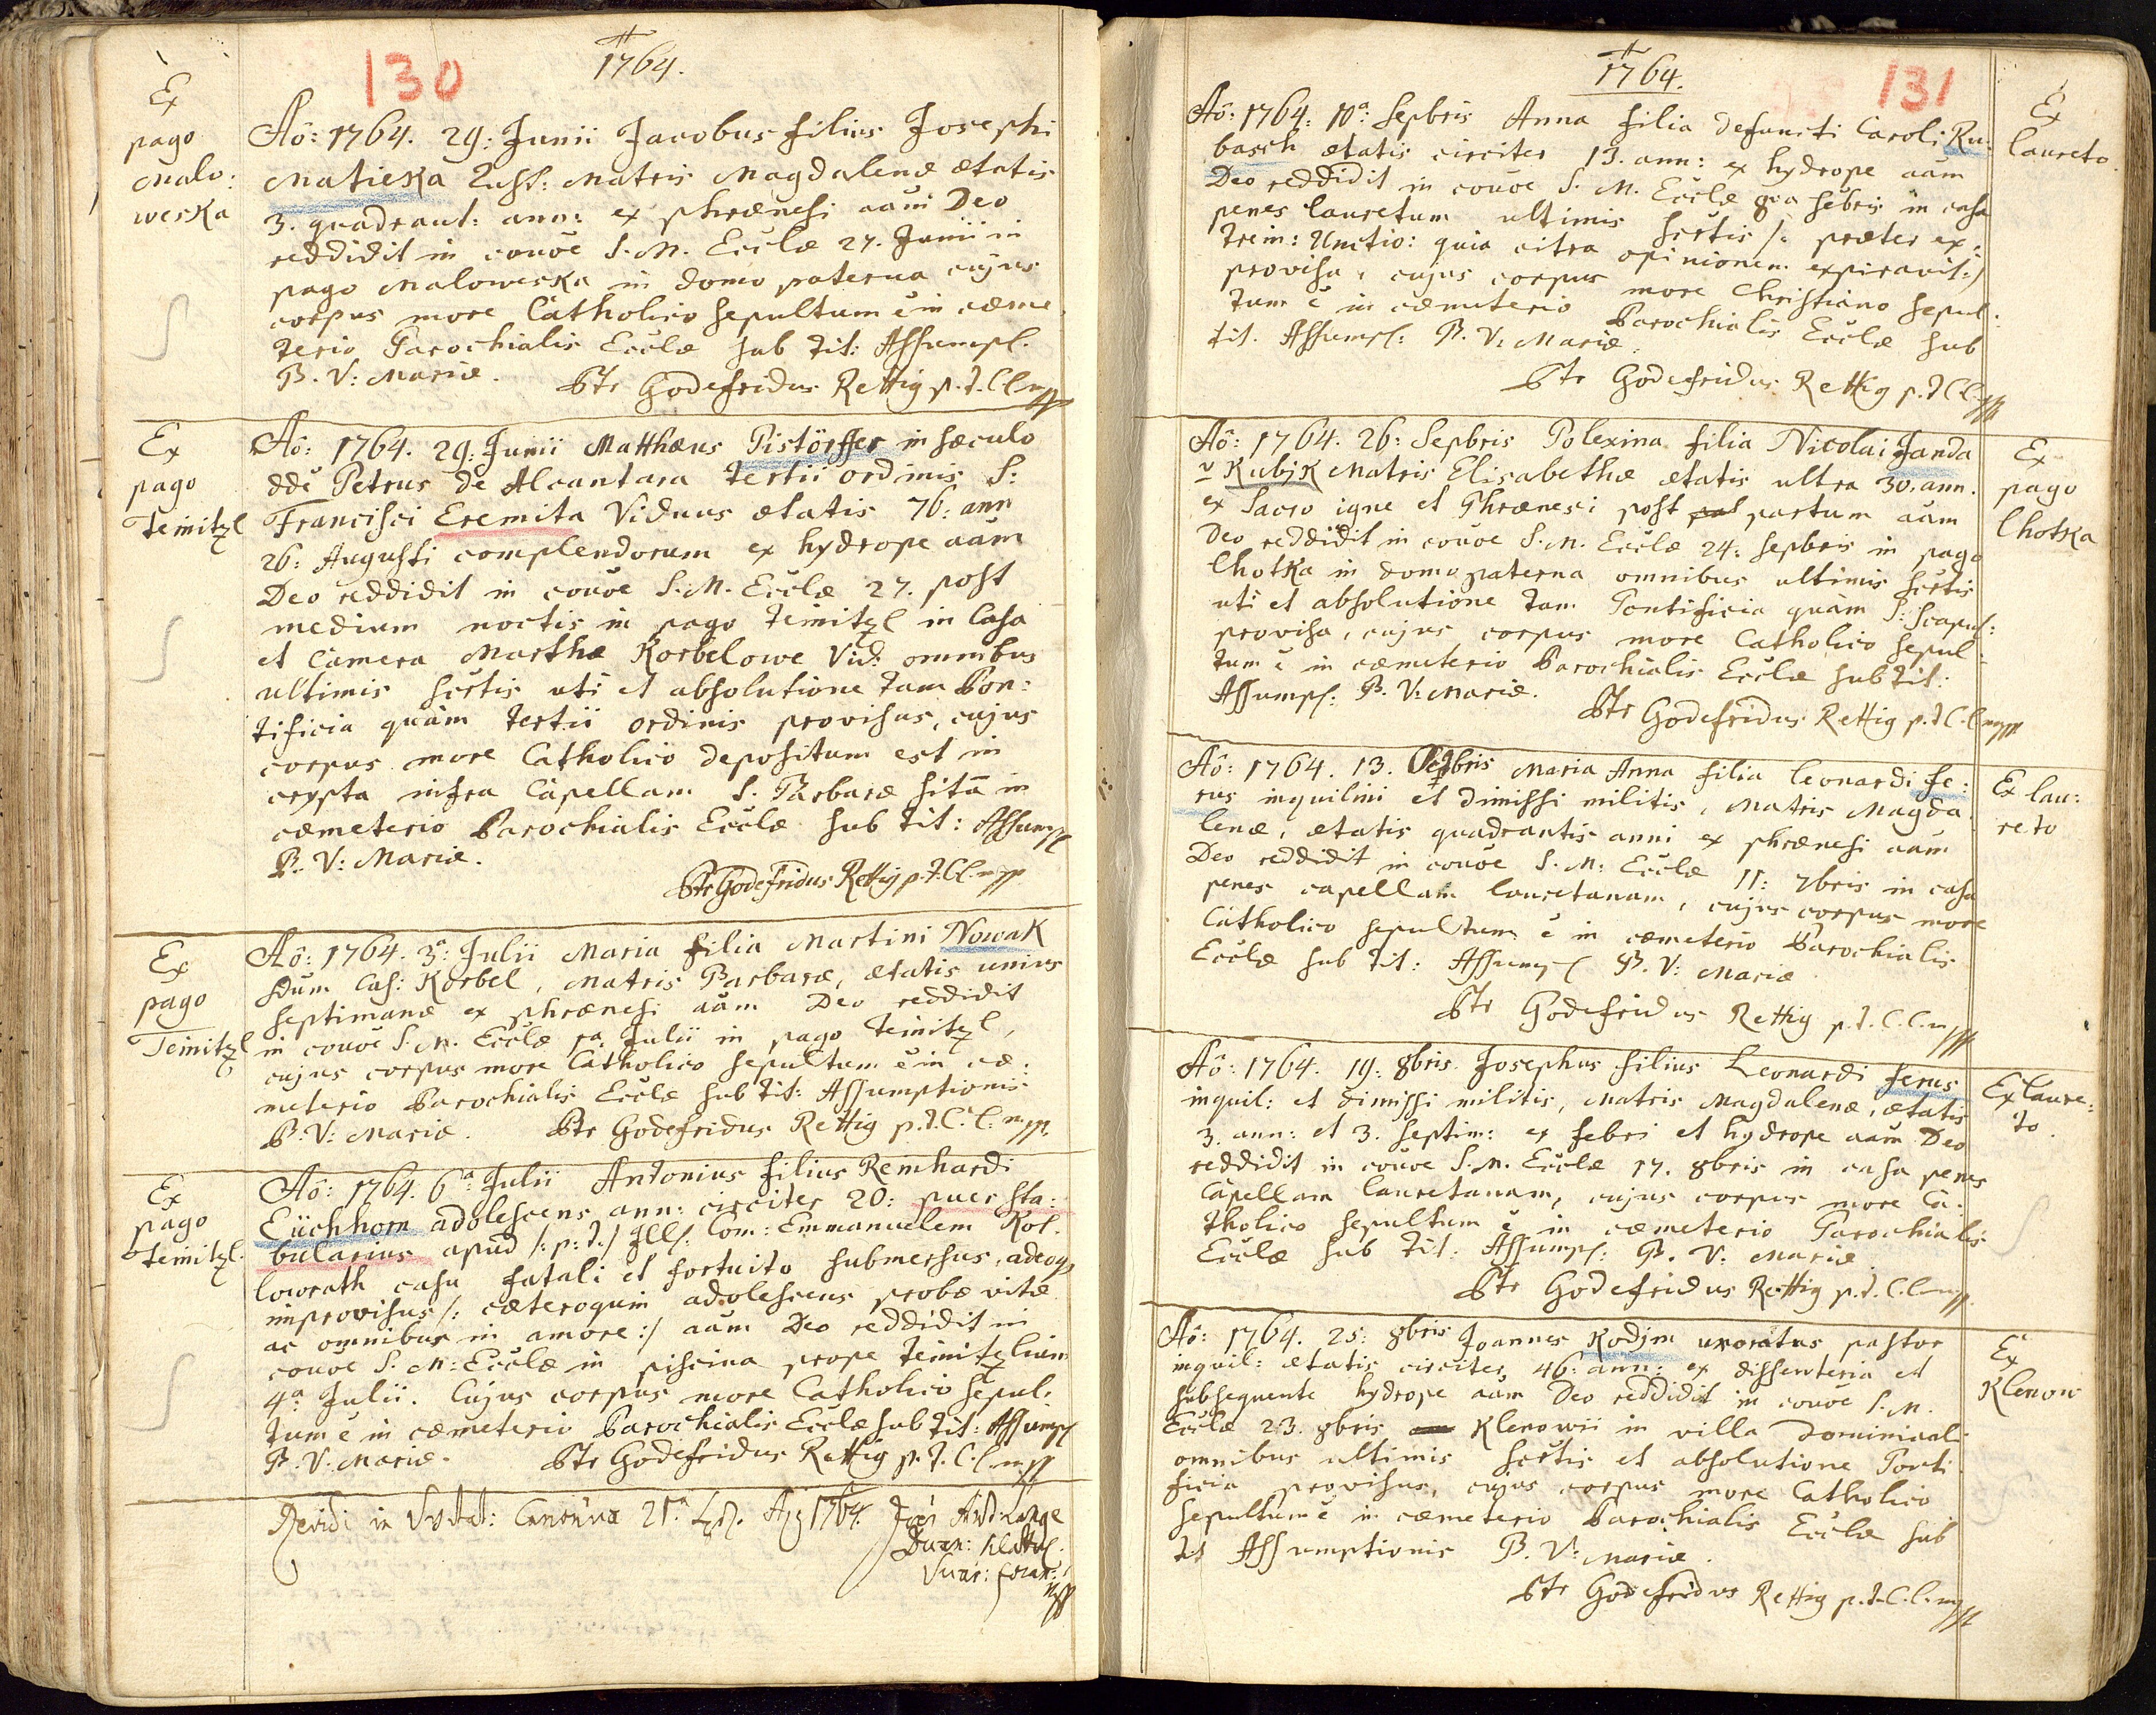 130
1764.
Ex
pago
Malo:
weska
Aô: 1764. 29: Junii Jacobus filius Josephi
Matieska Matris Magdalenæ ætatis
3. quadrant: ann: ex phrænesi aãm Deo
reddidit in cõuõe S. M. Ecclæ 27. Junii in
pago Maloweska in domo paterna cujus
corpus more Catholico sepultum ẽ in cæme
terio Parochialis Ecclæ sub tit: Assumpt.
B. V: Mariæ.
Ptr Godefridus Rettig p. t. C. L. mpp
Ex
pago
Teinitzl
Aô: 1764. 29: Junii Matthæus Pistörffer in sæculo
ddc Petrus de Alcantara tertii ordinis S:
Francisci Eremita Viduus ætatis 76: ann
26: Augusti complendorum ex hydrope aãm
Deo reddidit in cõuõe S. M. Ecclæ 27. post
medium noctis in pago Teinitzl in Casa
et Camera Marthæ Korbelowe Vid: omnibus
ultimis sc̃rtis uti et absolutione tam Pon:
tificia quàm tertii ordinis provisus, cujus
corpus more Catholico depositum est in
crypta infra Capellam S. Barbaræ sitã in
cæmeterio Parochialis Ecclæ sub tit: Assumpt
B. V: Mariæ.
Ptr Godefridus Rettig p. t. C. L. mpp
Ex
pago
Teinitzl
Aô: 1764. 3ª: Julii Maria filia Martini Nowak
sdum Cas: Korbel, Matris Barbaræ, ætatis unius
septimanæ ex phrænesi aãm Deo reddidit
in cõuõe S. M. Ecclæ 1ª Julii in pago Teinitzl,
cujus corpus more Catholico sepultum ẽ in cæ:
meterio Parochialis Ecclæ sub tit: Assumptionis
B. V: Mariæ.
Ptr Godefridus Rettig p. t. C. L. mpp
Ex
pago
Teinitzl.
Aô: 1764. 6ª: Julii Antonius filius Reinhardi
Eüchhorn adolescens ann: circiter 20: puer sta:
bularius apud /: p: t:/ Ills: Com: Emmanuelem Kol.
lowrath casu fatali et fortuito submersus, adeoq
improvisus /: cæteroquin adolescens probæ vitæ
ac omnibus in amore :/ aãm Deo reddidit in
cõuõe S. M: Ecclæ in piscina prope Teinitzlium
4ª: Julii. Cujus corpus more Catholico sepul.
tum ẽ in cæmeterio Parochialis Ecclæ sub tit: Assumpt
B. V. Mariæ.
Ptr Godefridus Rettig p. t. C. L. mpp
Revidi in Visitat: Canonica 21ª 1764.
mpp
1764.
131
Ex
laureto.
Aô: 1764: 10ª: Sepbris Anna filia defuncti Caroli Ru:
basch ætatis circiter 13. ann: ex hydrope aãm
Deo reddidit in cõuõe S. M. Ecclæ 8va sebris in casa
penes lauretum ultimis sc̃rtis /: præter ex:
trem: Unctio: quia citra opinionem expiravit:/
provisa, cujus corpus more Christiano sepul:
tum ẽ in cæmeterio Parochialis Ecclæ sub
tit. Assumpt: B. V: Mariæ.
Ptr Godefridus Rettig p. t. C. L. mpp
Ex
pago
lhotka
Aô: 1764. 26: Sepbris Polexina filia Nicolai Janda
v Kubjk Matris Elisabethæ ætatis ultra 30. ann.
ex Sacro igne et Phrænesi post partum aãm
Deo reddidit in cõuõe S. M. Ecclæ 24: sepbris in pago
lhotka in domo paterna omnibus ultimis sc̃rtis
uti et absolutione tam Pontificia quàm S: Scapul:
provisa, cujus corpus more Catholico sepul:
tum ẽ in cæmeterio Parochialis Ecclæ sub tit:
Assumpt: B. V: Mariæ.
Ptr Godefridus Rettig p. t. C. L. mpp
Ex lau:
reto
Aô: 1764. 13. Maria Anna filia leonardi fe:
rus inquilini et dimissi militis, Matris Magda
lenæ, ætatis quadrantis anni ex phrænesi aãm
Deo reddidit in cõuõe S. M: Ecclæ 11: 7bris in casa
penes capellam lauretanam, cujus corpus more
Catholico sepultum ẽ in cæmeterio Parochialis
Ecclæ sub tit: Assumpt B. V: Mariæ
Ptr Godefridus Rettig p. t. C. L. mpp
Ex laure:
to.
Aô: 1764. 19: 8bris. Josephus filius Leonardi ferus
inquil: et dimissi militis, Matris Magdalenæ, ætatis
3. ann: et 3. septim: ex febri et hydrope aãm Deo
reddidit in cõuõe S. M. Ecclæ 17. 8bris in casa penes
Capellam lauretanam, cujus corpus more Ca:
tholico sepultum ẽ in cæmeterio Parochialis
Ecclæ sub tit: Assumpt: B. V: Mariæ
Ptr Godefridus Rettig p. t. C. L. mpp
Ex
Klenow
Aô: 1764. 25: 8bris Joannes Kodjm uxoratus pastor
inquil: ætatis circiter 46: ann: ex dissenteria et
subsequente hydrope aãm Deo reddidit in cõuõe S. M.
Ecclæ 23. 8bris Klenowii in villa Dominicali
omnibus ultimis sc̃rtis et absolutione Ponti
ficia provisus, cujus corpus more Catholico
sepultum ẽ in cæmeterio Parochialis Ecclæ sub
tit Assumptionis B. V: Mariæ.
Ptr Godefridus Rettig p. t. C. L. mpp